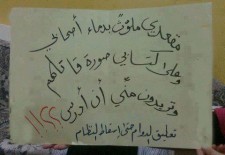 مقعدي ملوّث بدماء أصحابي
وعلى كتابي صورة قاتلهم
وتريدون منّي أن أدرس !!؟؟
تعليق الدوام حتى إسقاط النظام